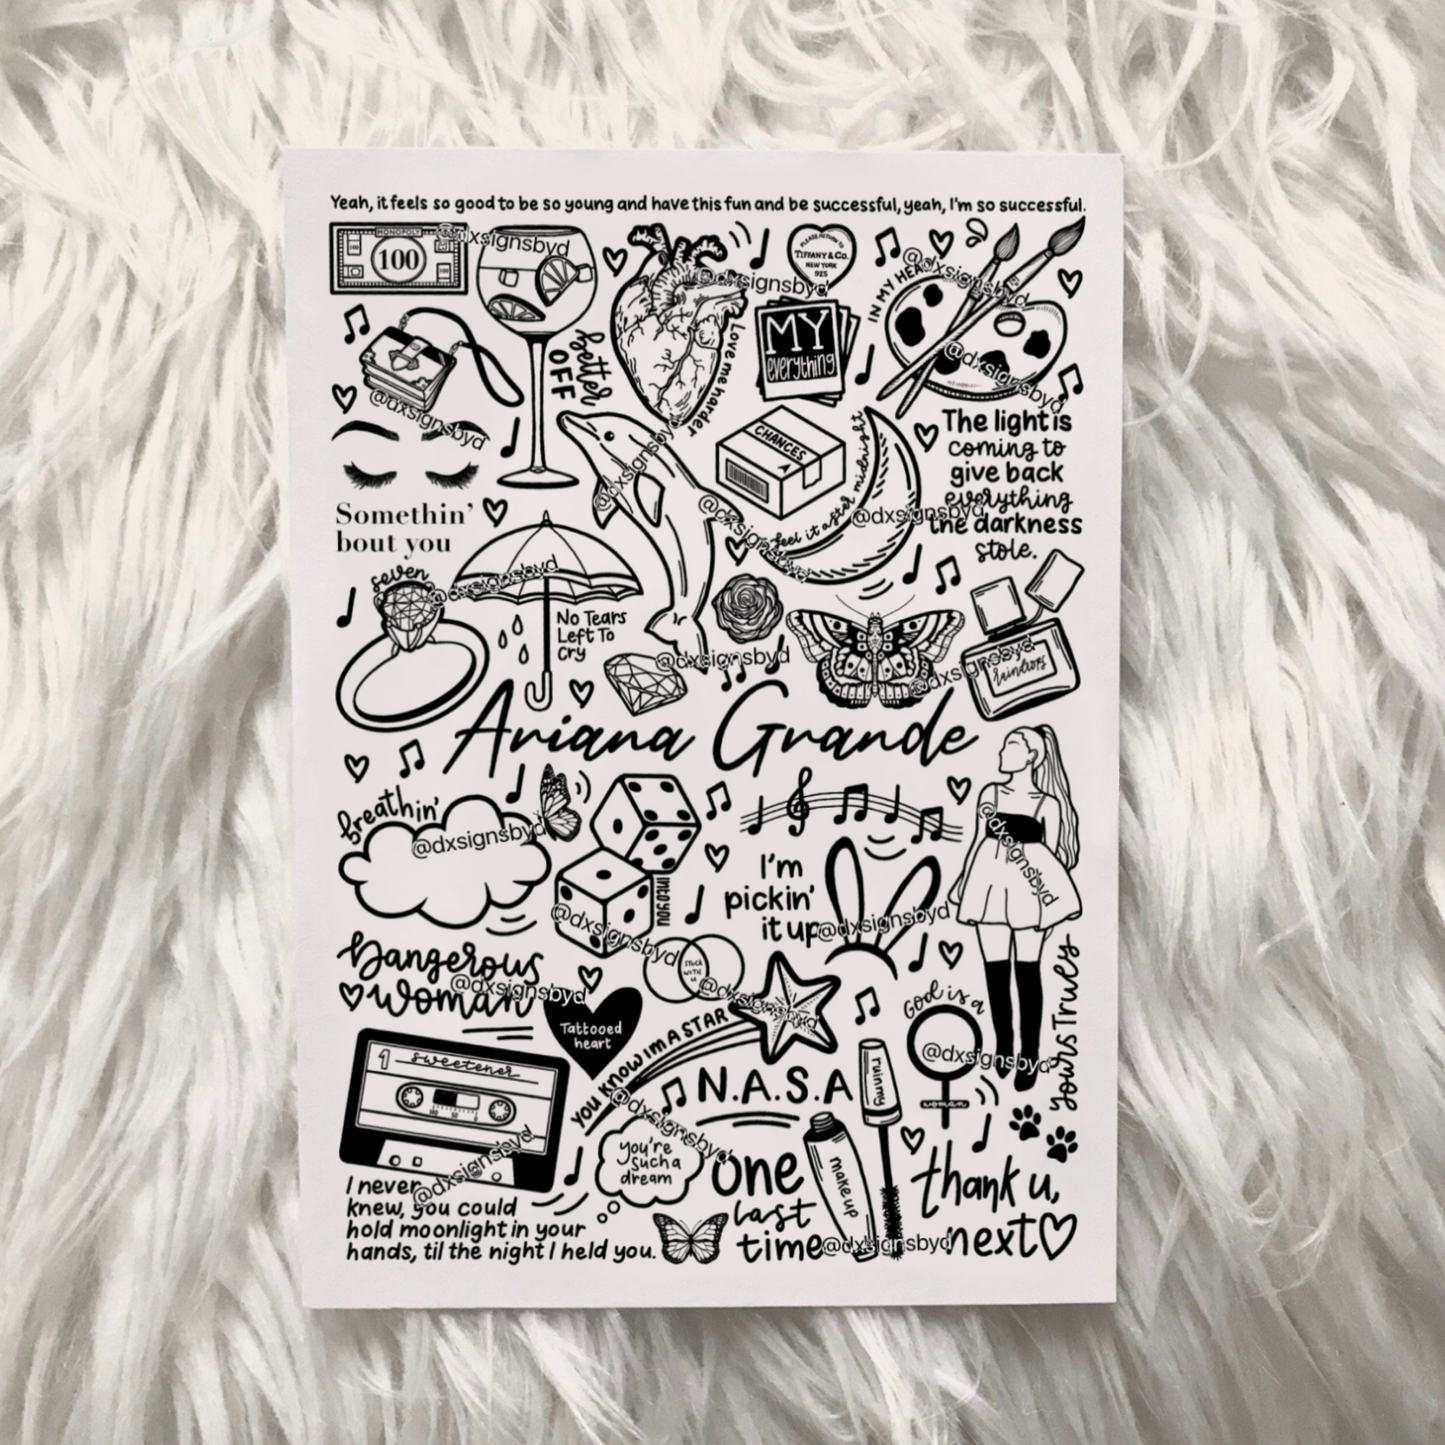 Yeah, it feels so good to be so young and have this fun and be successful, yeah, I'm so successful.
MONOPOLY
100
@dxsignsbyd
better
OFF
Love me harder
@dxsignsbyd
PLEASE RETURN TO
TIFFANY & CO.
NEW YORK
925
MY
everything
IN MY HEAD
@dxsignsbyd
@dxsignsbyd
@dxsignsbyd
@dxsignsbyd
CHANCES
feel it after midnight
@dxsignsbyd
@dxsignsbyd
The light is
coming to
give back
everything
the darkness
stole.
Somethin'
bout you
seven
@dxsignsbyd
No Tears
Left To
Cry
@dxsignsbyd
@dxsignsbyd
Raindrops
Ariana Grande
breathin'
@dxsignsbyd
into you
@dxsignsbyd
I'm
pickin'
it up
@dxsignsbyd
@dxsignsbyd
Dangerous
woman
@dxsignsbyd
stuck
with
u
@dxsignsbyd
Tattooed
heart
YOU KNOW IM A STAR
God is a
woman
@dxsignsbyd
Yours Truly
1 sweetener
100 50 0
@dxsignsbyd
@dxsignsbyd
N.A.S.A
ruinny
make up
you're
such a
dream
one
last
time
@dxsignsbyd
thank u,
next
I never
knew, you could
hold moonlight in your
hands, til the night I held you.